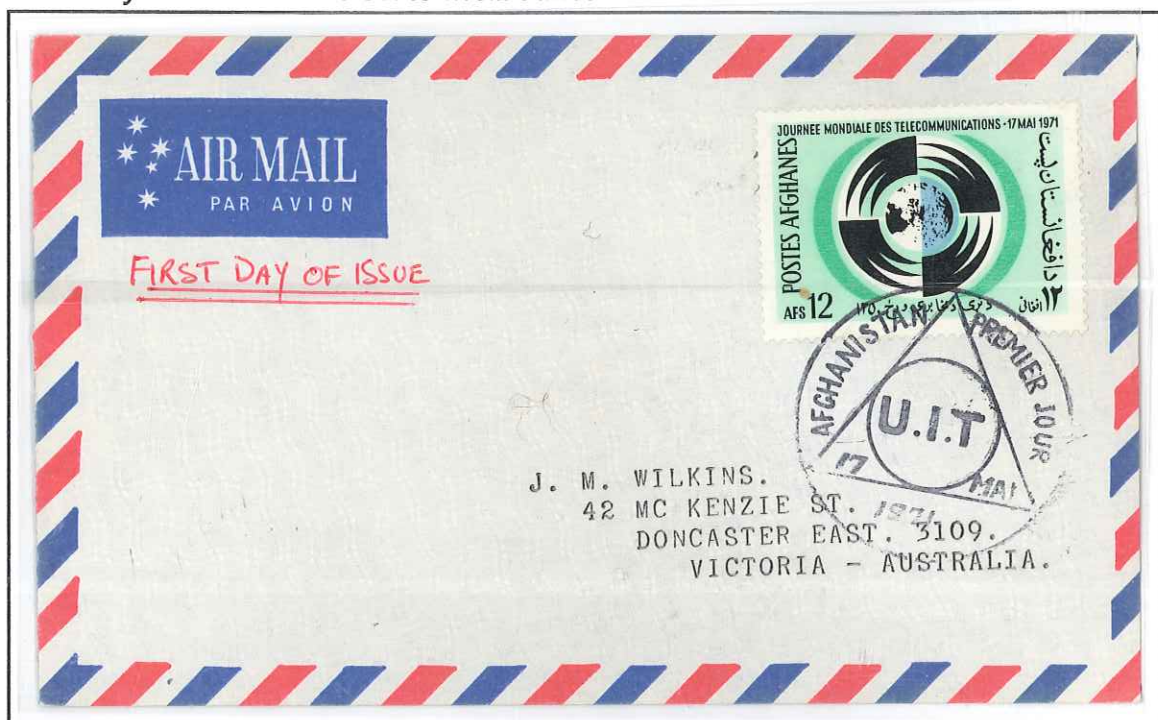 AIR MAIL
PAR AVION
FIRST DAY OF ISSUE
JOURNEE MONDIALE DES TELECOMMUNICATIONS - 17 MAI 1971
POSTES AFGHANES
دافغانستان پست
AFS 12
۱۲ افغانی
AFGHANISTAN
PREMIER JOUR
U.I.T
17 MAI
1971
J. M. WILKINS.
42 MC KENZIE ST.
DONCASTER EAST. 3109.
VICTORIA - AUSTRALIA.